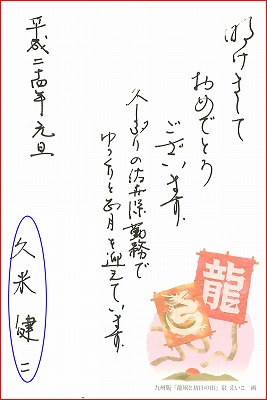 明けまして
おめでとう
ございます。
久しぶりの佐世保勤務で
ゆっくりとお正月を迎えています。
平成二十四年 元旦
久米 健二
龍
九州版「龍凧と初日の出」泉 えいこ 画